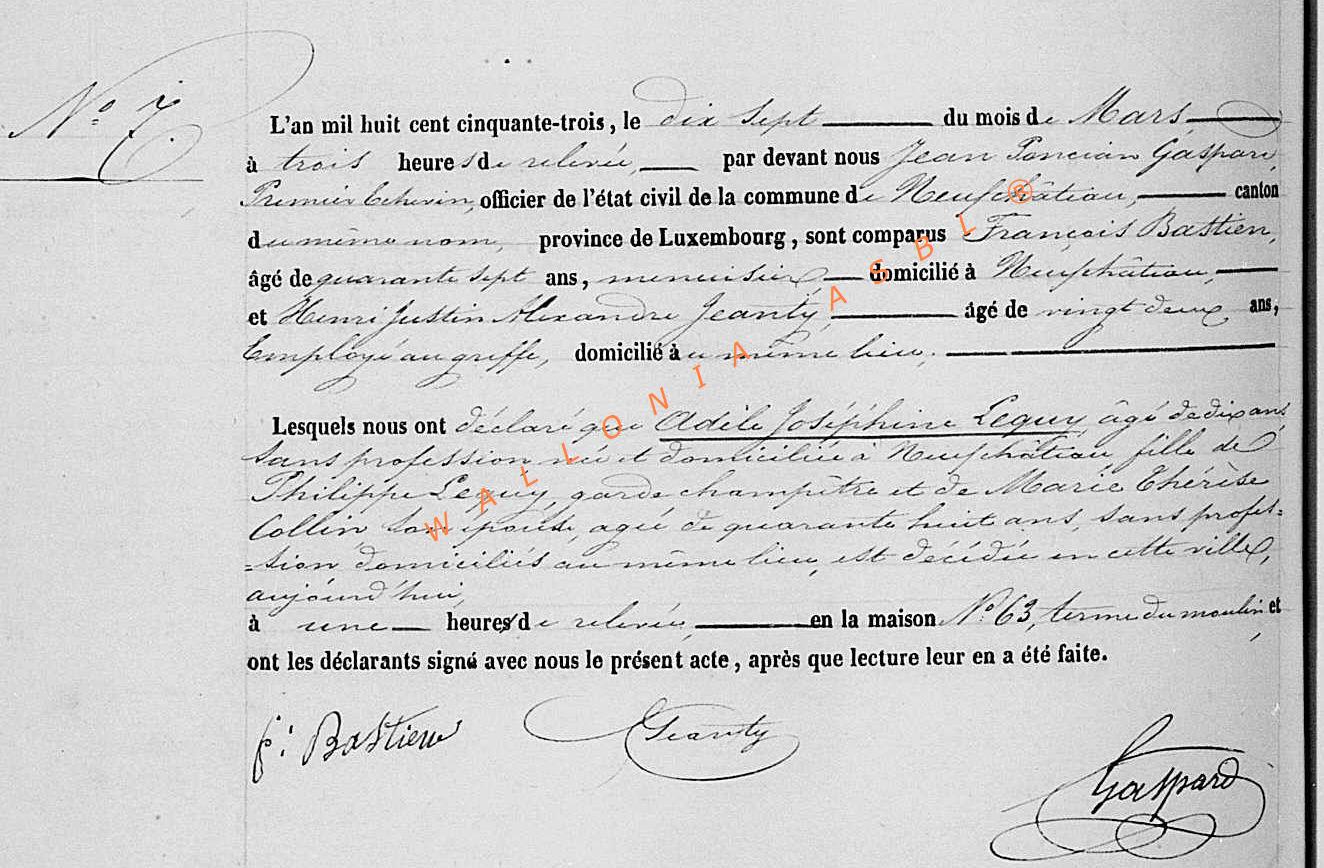 N° 7.
L'an mil huit cent cinquante-trois, le dix sept du mois de Mars
à trois heures de relevée, par devant nous Jean Poncian Gaspard,
Premier Echevin, officier de l'état civil de la commune de Neufchâteau, canton
du même nom, province de Luxembourg, sont comparus François Bastien,
âgé de quarante sept ans, menuisier, domicilié à Neufchâteau,
et Henri Justin Alexandre Jeanty, âgé de vingt deux ans,
Employé au greffe, domicilié au même lieu,
Lesquels nous ont déclaré que Adèle Joséphine Lequy âgé de dix ans
sans profession née et domiciliée à Neufchâteau fille de
Philippe Lequy, garde champêtre et de Marie Thérèse
Collin son épouse, agée de quarante huit ans, sans profes=
=sion domiciliés au même lieu, est décédée en cette ville,
aujourd'hui,
à une heures de relevée, en la maison N° 63, terme du moulin, et
ont les déclarants signé avec nous le présent acte, après que lecture leur en a été faite.
f. Bastien Jeanty
Gaspard
WALLONIA ASBL ®